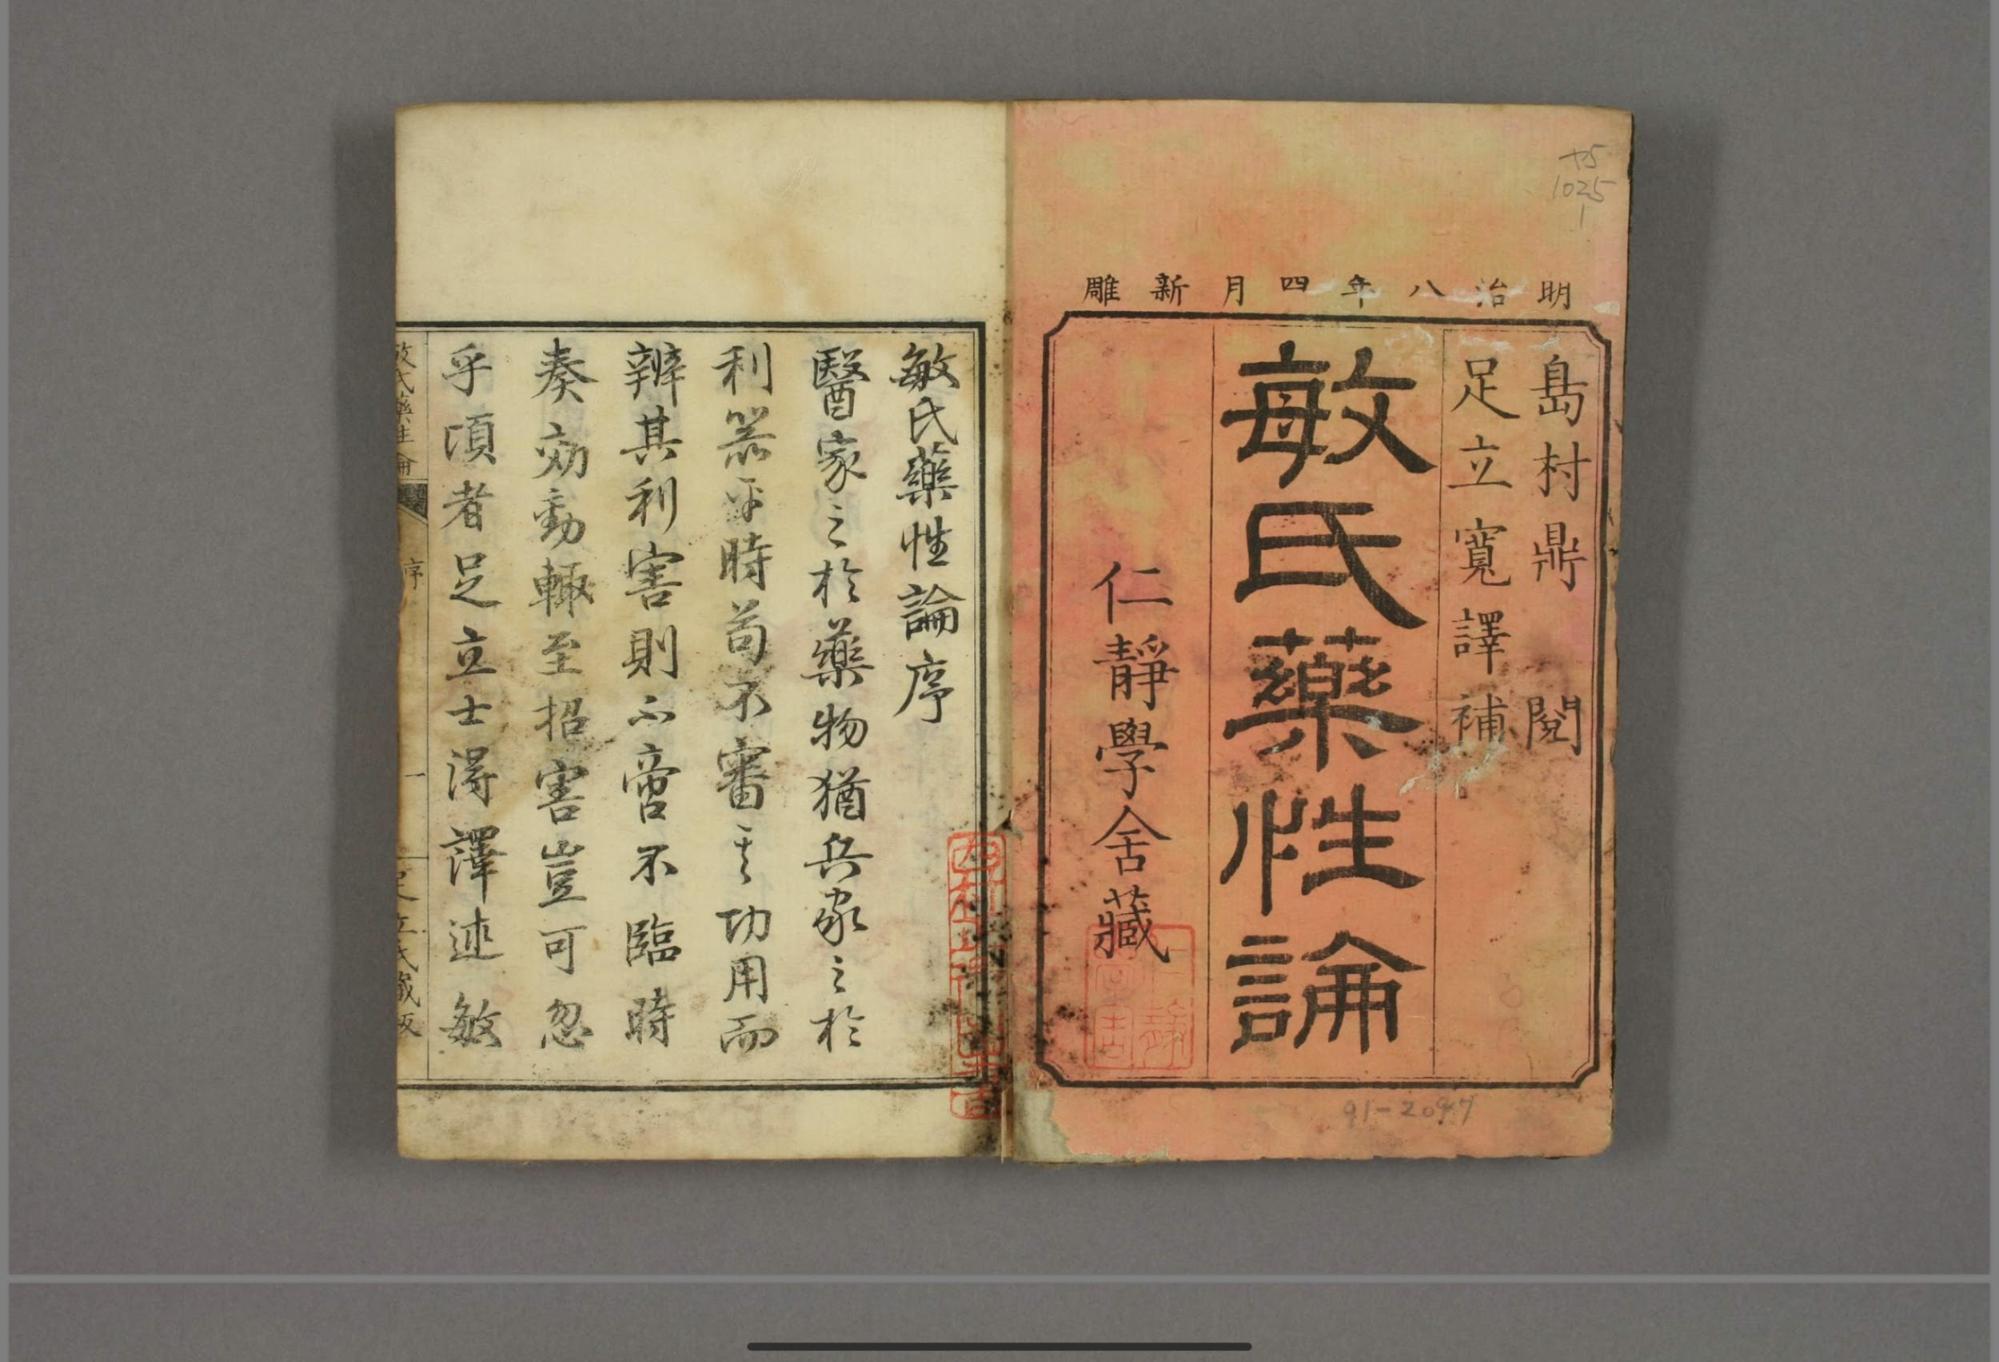 明治八年四月新雕
島村鼎閲
足立寬譯補
敏氏藥性論
仁靜學舍藏
75
1025
1
91-2097
敏氏藥性論序
醫家之於藥物猶兵家之於
利器平時苟不審其功用而
辨其利害則不啻不臨時
奏効動輙至招害豈可忽
乎頃者足立士得譯述敏
敏氏藥性論
序
一
足立氏藏版